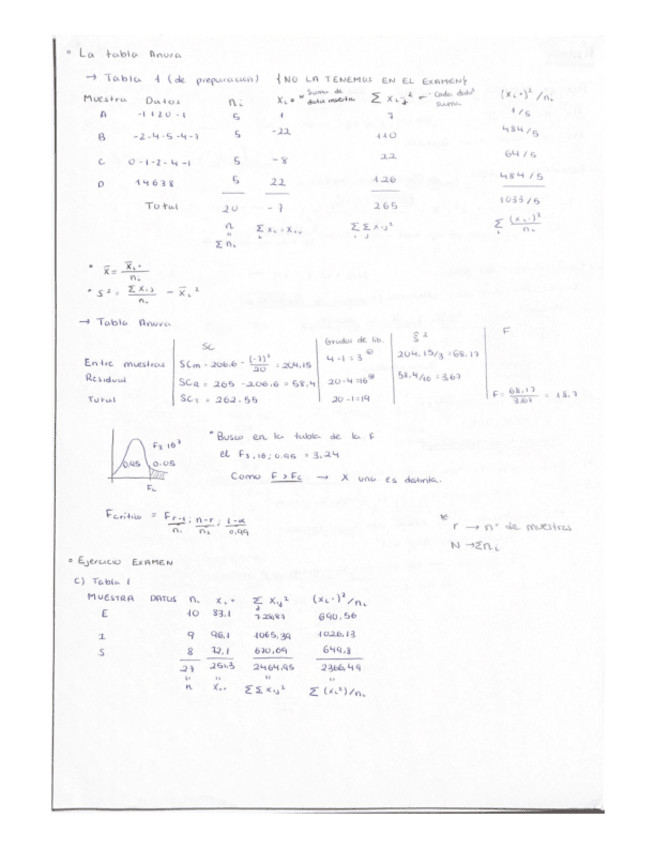 • La tabla Anova
→ Tabla 1 (de preparacion) {NO LA TENEMOS EN EL EXAMEN}
Muestra Datos nᵢ Xᵢ• = "Suma de datos muestra Σ Xᵢⱼ² = "Cada dato² suma (Xᵢ•)²/nᵢ
A -1 1 2 0 -1 5 1 7 1/5
B -2 -4 -5 -4 -7 5 -22 110 484/5
C 0 -1 -2 -4 -1 5 -8 22 64/5
D 1 4 6 3 8 5 22 126 484/5
Total 20 -7 265 1033/5
n Σ Xᵢ• = X•• ΣΣ Xᵢⱼ² Σ (Xᵢ•)²/nᵢ
Σ nᵢ
• X̄ = X̄ᵢ•/nᵢ
• S² = Σ Xᵢⱼ/nᵢ - X̄ᵢ²
→ Tabla Anova
SC Grados de lib. Ŝ² F
Entre muestras SCm = 206.6 - (-7)²/20 = 204.15 4-1=3 204.15/3=68.17
Residual SCR = 265 - 206.6 = 58.4 20-4=16 58.4/16=3.67
Total SCT = 262.55 20-1=19 F = 68.17/3.67 = 18.7
F₃,₁₆ 0.95 0.05 Fc
* Busco en la tabla de la F
el F₃,₁₆;₀.₉₅ = 3,24
Como F > Fc → X una es distinta.
Fcritico = F r-1/n₁ ; n-r/n₂ ; 1-α/0.99
* r → nº de muestras
N → Σnᵢ
• Ejercicio EXAMEN
C) Tabla 1
MUESTRA DATOS nᵢ Xᵢ• Σ Xᵢⱼ² (Xᵢ•)²/nᵢ
E 10 83.1 690.56
I 9 96,1 1065,39 1026.13
S 8 72,1 649.8
27 251.3 2464.95 2366,49
n X•• ΣΣ Xᵢⱼ² Σ (Xᵢ²)/nᵢ